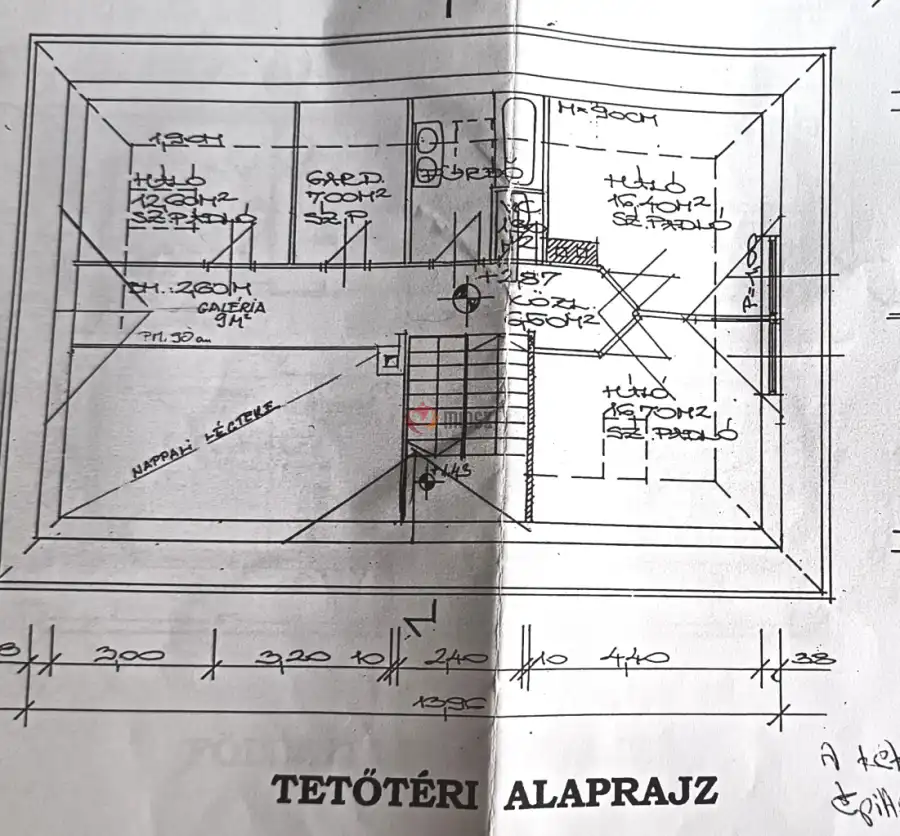 1,90M
M=90CM
HÁLÓ
12,60M²
SZ.PADLÓ
GARD.
7,00M²
SZ.P.
FÜRDŐ
HÁLÓ
16,40M²
SZ.PADLÓ
+2,87
P=1,00
BM.:2,60M
GALÉRIA
9M²
KÖZL.
6,50M²
PM.90cm
HÁLÓ
16,70M²
SZ.PADLÓ
NAPPALI LÉGTERE
+1,43
3,00
3,20
10
2,40
10
4,40
38
13,96
TETŐTÉRI ALAPRAJZ
A